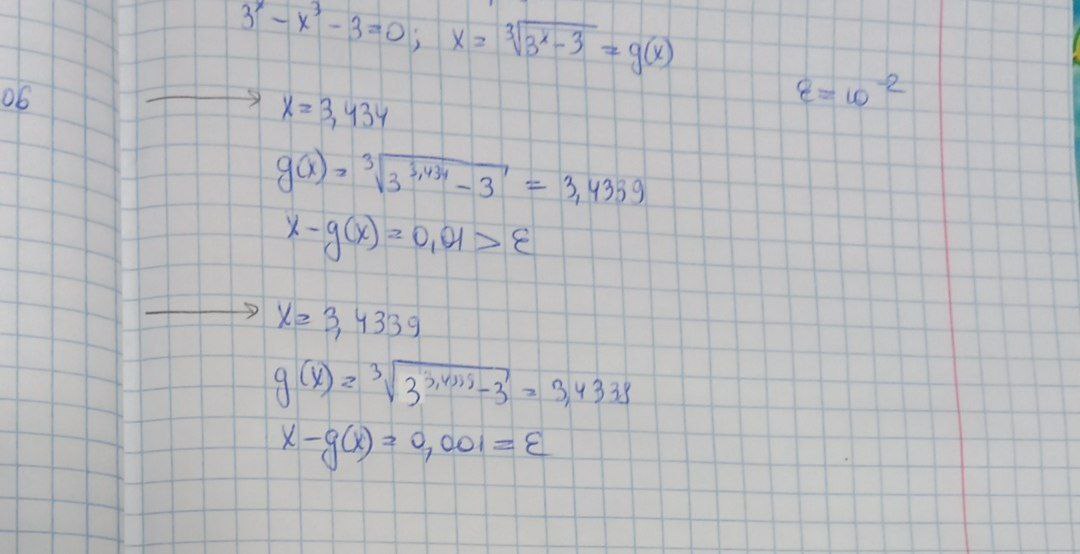 3ˣ - x³ - 3 = 0; x = ∛(3ˣ - 3) = g(x)
ε = 10⁻²
06
→ x = 3,434
g(x) = ∛(3^3,434 - 3) = 3,4339
x - g(x) = 0,01 > ε
→ x = 3,4339
g(x) = ∛(3^3,4339 - 3) = 3,4338
x - g(x) = 0,001 = ε